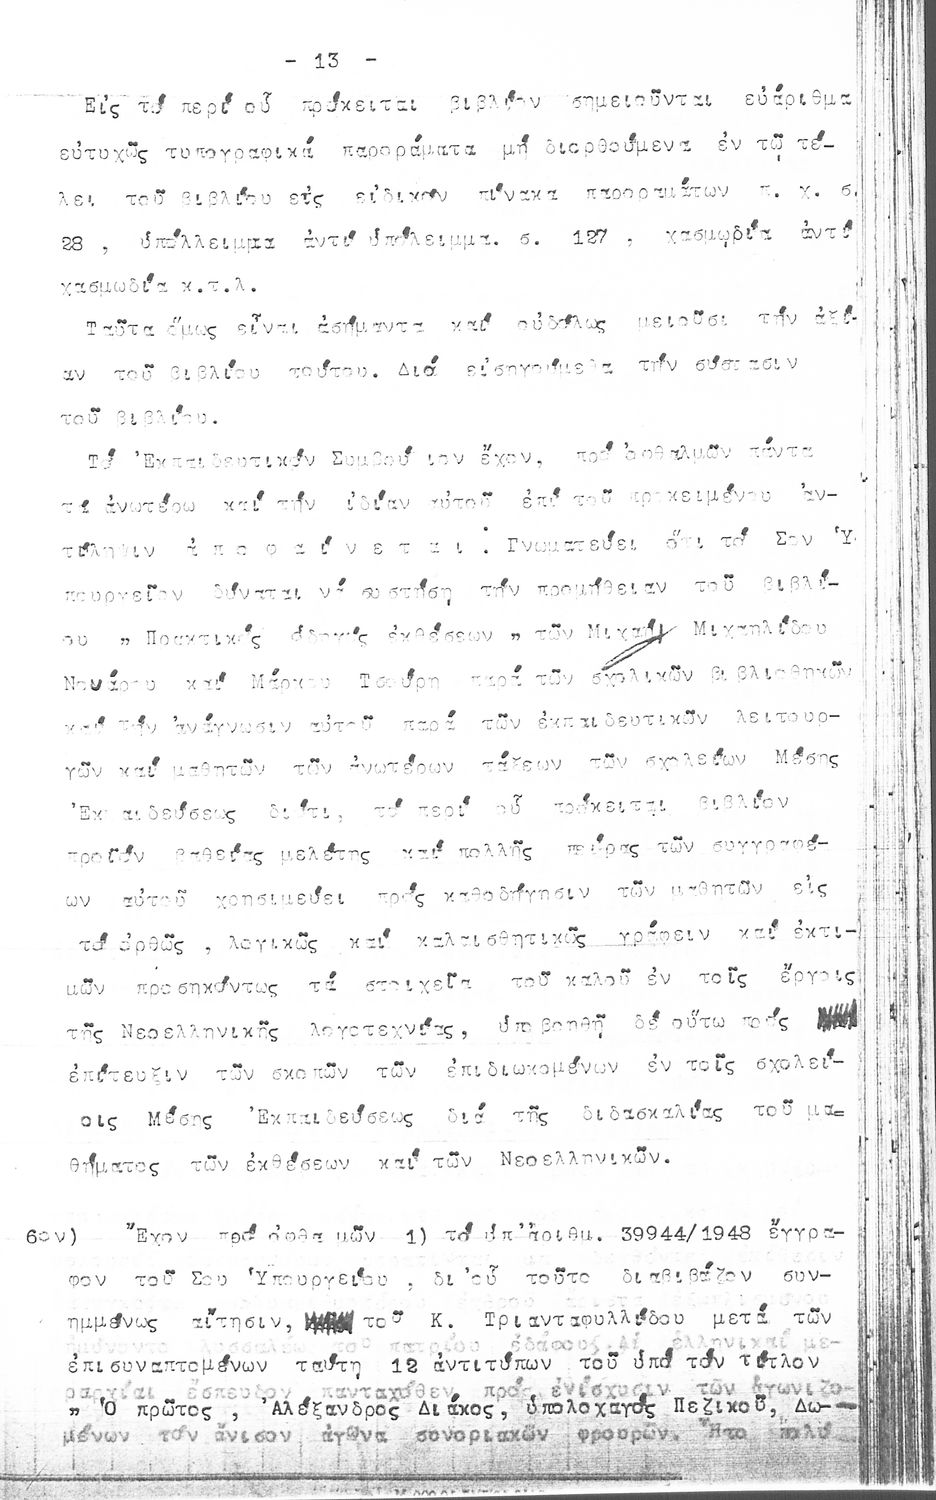 - 13 -
Εἰς τό περί οὗ πρόκειται βιβλίον σημειοῦνται εὐάριθμα
εὐτυχῶς τυπογραφικά παροράματα μή διορθούμενα ἐν τῷ τέ-
λει τοῦ βιβλίου εἰς εἰδικόν πίνακα παροραμάτων π. χ. σ.
28 , ὑπόλλειμμα ἀντί ὑπόλειμμα. σ. 127 , χασμῳδία ἀντί
χασμωδία κ.τ.λ.
Ταῦτα ὅμως εἶναι ἀσήμαντα καί οὐδόλως μειοῦσι τήν ἀξί-
αν τοῦ βιβλίου τούτου. Διά εἰσηγούμεθα τήν σύστασιν
τοῦ βιβλίου.
Τό Ἐκπαιδευτικόν Συμβούλιον ἔχον, πρό ὀφθαλμῶν πάντα
τά ἀνωτέρω καί τήν ἰδίαν αὐτοῦ ἐπί τοῦ προκειμένου ἀν-
τίληψιν ἀ π ο φ α ί ν ε τ α ι : Γνωματεύει ὅτι τό Σον Ὑ-
πουργεῖον δύναται νά συστήσῃ τήν προμήθειαν τοῦ βιβλί-
ου " Πρακτικός ὁδηγός ἐκθέσεων " τῶν Μιχαήλ Μιχαηλίδου
Νουάρου καί Μάρκου Τσούρη παρά τῶν σχολικῶν βιβλιοθηκῶν
καί τήν ἀνάγνωσιν αὐτοῦ παρά τῶν ἐκπαιδευτικῶν λειτουρ-
γῶν καί μαθητῶν τῶν ἀνωτέρων τάξεων τῶν σχολείων Μέσης
Ἐκπαιδεύσεως διότι, τό περί οὗ πρόκειται βιβλίον
προϊόν βαθείας μελέτης καί πολλῆς πείρας τῶν συγγραφέ-
ων αὐτοῦ χρησιμεύει πρός καθοδήγησιν τῶν μαθητῶν εἰς
τό ὀρθῶς , λογικῶς καί καλαισθητικῶς γράφειν καί ἐκτι-
μῶν προσηκόντως τά στοιχεῖα τοῦ καλοῦ ἐν τοῖς ἔργοις
τῆς Νεοελληνικῆς λογοτεχνίας, ὑποβοηθῇ δέ οὕτω πρός
ἐπίτευξιν τῶν σκοπῶν τῶν ἐπιδιωκομένων ἐν τοῖς σχολεί-
οις Μέσης Ἐκπαιδεύσεως διά τῆς διδασκαλίας τοῦ μα=
θήματος τῶν ἐκθέσεων καί τῶν Νεοελληνικῶν.
6ον) Ἔχον πρό ὀφθαλμῶν 1) τό ὑπ'ἀριθμ. 39944/1948 ἔγγρα-
φον τοῦ Σου Ὑπουργείου , δι'οὗ τοῦτο διαβιβάζον συν-
ημμένως αἴτησιν, τοῦ Κ. Τριανταφυλλίδου μετά τῶν
ἐπισυναπτομένων ταύτῃ 12 ἀντιτύπων τοῦ ὑπό τόν τίτλον
ραρχίαι ἔσπευδον πανταχόθεν πρός ἐνίσχυσιν τῶν ἀγωνιζο-
" Ὁ πρῶτος , Ἀλέξανδρος Διάκος, ὑπολοχαγός Πεζικοῦ, Δω-
μένων τόν ἄνισον ἀγῶνα συνοριακῶν φρουρῶν. Ἦτο πολύ